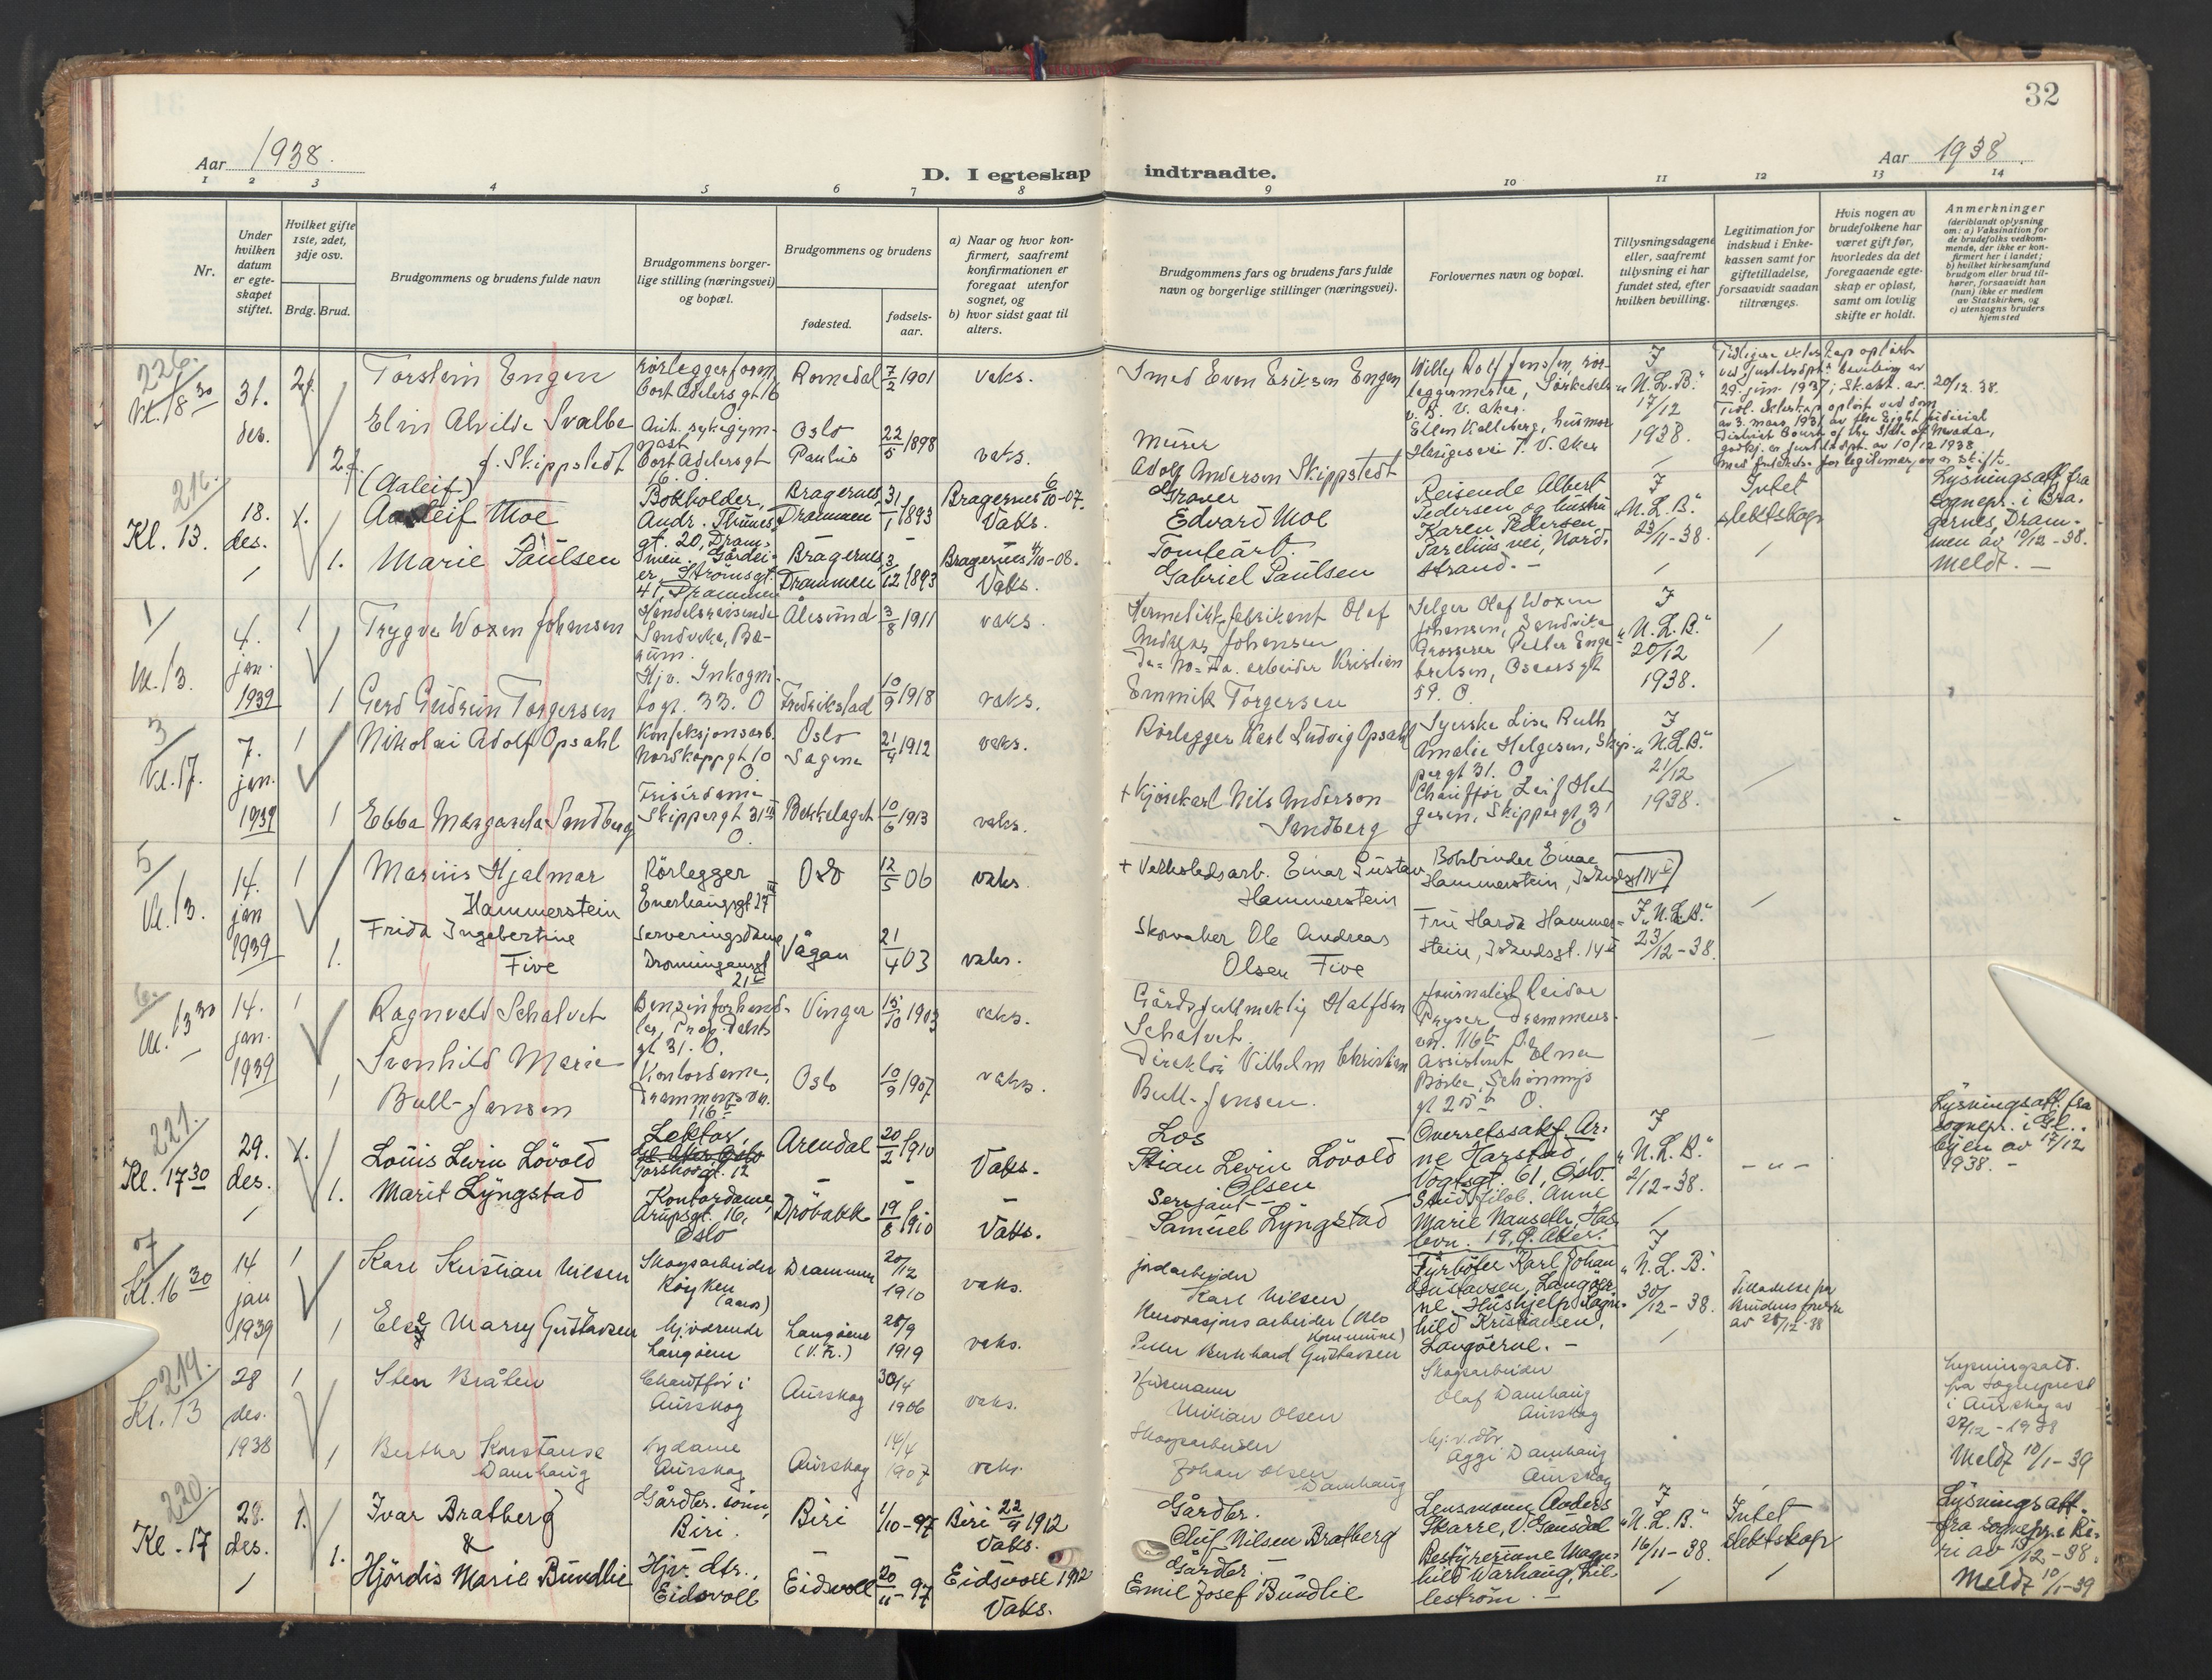 32
Aar 1938.
D. I egteskap indtraadte.
Aar 1938.
1 2 3 4 5 6 7 8 9 10 11 12 13 14
Nr.
Under hvilken datum er egte-skapet stiftet.
Hvilket gifte 1ste, 2det, 3dje osv.
Brdg. Brud.
Brudgommens og brudens fulde navn
Brudgommens borger-lige stilling (næringsvei) og bopæl.
Brudgommens og brudens
fødested.
fødsels-aar.
a) Naar og hvor kon-firmert, saafremt konfirmationen er foregaat utenfor sognet, og
b) hvor sidst gaat til alters.
Brudgommens fars og brudens fars fulde navn og borgerlige stillinger (næringsvei).
Forlovernes navn og bopæl.
Tillysningsdagene eller, saafremt tillysning ei har fundet sted, efter hvilken bevilling.
Legitimation for indskud i Enke-kassen samt for giftetilladelse, forsaavidt saadan tiltrænges.
Hvis nogen av brudefolkene har været gift før, hvorledes da det foregaaende egte-skap er opløst, samt om lovlig skifte er holdt.
Anmerkninger
(deriblandt oplysning om: a) Vaksination for de brudefolks vedkom-mende, der ikke er kon-firmert her i landet; b) hvilket kirkesamfund brudgom eller brud til-hører, forsaavidt han (hun) ikke er medlem av Statskirken, og c) utensogns bruders hjemsted
226. Kl. 18 30
31. des.
2g.
Torstein Engen
Rørleggerform, Cort Adelers gt 16 O.
Romedal
7/2 1901
vaks.
Smed Even Eriksen Engen
Willy Rolf Jensen, rør-leggermester, Sørkedals v. B. V. Aker.
F "N.L.B." 17/12 1938.
20/12. 38.
2g.
Elin Alvilde Svalbe f. Skippstedt
Aut. sykegym-nast Cort Adelersgt 16. O.
Oslo Paulus
22/5 1898
vaks.
Murer Adolf Andersen Skippstedt
Ellen Kalleberg, husmor
216. Kl. 13.
18. des.
1.
(Aaleif) Aaleif Moe
Bokholder, Andr. Thûmes gt. 20, Dram-men.
Bragernes, Drammen
31/1 1893
Bragernes 6/10-07. Vaks.
Graver Edvard Moe
Reisende Albert Pedersen og hustru Karen Pedersen Parelius vei, Nord-strand. -
F "N.L.B." 23/11-38.
Intet slektskap
Lysningsatt. fra sognepr. i Bra-gernes, Dram-men av 10/12-38. Meldt. -
1.
Marie Paulsen
Gårdei-er, Strømsgt. 41, Drammen
Bragernes, Drammen
3/12 1893
Bragernes 4/10-08. Vaks.
Tomtearb. Gabriel Paulsen
1/ Kl. 13.
4. jan. 1939
1
Trygve Woxen Johansen
Handelsreisende Sandvika, Bæ-rum.
Ålesund
3/8 1911
vaks.
Hermetikkfabrikant Olaf Andreas Johansen
Selger Olaf Woxen Johansen, Sandvika
F "N.L.B." 20/12 1938.
1
Gerd Gudrun Torgersen
Hjv. Inkogni-togt. 33. O
Fredrikstad
10/9 1918
vaks.
arbeider Kristian Emmik Torgersen
Grosserer Petter Enge-bretsen, Oscarsgt 59. O.
3/ Kl. 17.
7. jan. 1939
1
Nikolai Adolf Opsahl
Konfeksjonsarb. Markoppgt 10 O.
Oslo Sagene
21/4 1912
vaks.
Rørlegger Karl Ludvig Opsahl
Syerske Lise Ruth Amalie Helgesen, Skip-pergt 31. O
F "N.L.B." 21/12 1938.
1
Ebba Margareta Sandberg
Frisørdame Skippergt 31 O.
Bekkelaget
10/6 1913
vaks.
+ Kjørekarl Nils Anderson Sandberg
Chauffør Leif Hel-gesen, Skippergt 31 O
5/ Kl. 13.
14. jan 1939
1
Marius Hjalmar Hammerstein
Rørlegger Enerhauggt 27
Oslo
12/5 06
vaks.
+ Verkstedsarb. Einar Gustav Hammerstein
Bokbinder Einar Hammerstein,
F "N.L.B." 23/12-38.
1.
Frida Ingebertine Five
Serveringsdame Dronningensgt 21
Vågan
21/4 03
vaks.
Skomaker Ole Andreas Olsen Five
Fru Harda Hammer-stein,
6. Kl. 13 30
14. jan. 1939
1
Ragnvald Schalvet
Bensinforhand-ler, Prof. Dahls gt 31. O.
Vinger
15/10 1903
vaks.
Gårdsfullmektig Halfdan Schalvet.
Journalist Reidar Pryser Drammens-vn. 116 O.
1
Svanhild Marie Bull-Jensen
Kontordame, Drammensvn. 116
Oslo
10/9 1907
vaks.
Direktør Vilhelm Christian Bull-Jensen.
Assistent Elna Børke, Schønnings gt 25 O.
221. Kl. 17 30
29. des.
1.
Louis Levin Løvold
Lektor, Torshovgt. 12
Arendal
20/2 1910
Vaks.
Los Stian Levin Løvold Olsen
Overrettssakf. Ar-ne Harstad, Vogtsgt. 61, Oslo.
F "N.L.B." 2/12-38.
- " -
Lysningsatt. fra sognepr. i Gl. byen av 17/12 1938. -
1.
Marit Lyngstad
Kontordame, Arupsgt. 16, Oslo
Drøbakk
19/8 1910
Vaks.
Serjant Samuel Lyngstad
Stud. filol. Anne Marie Nauseth, Has-levn. 19, Ø. Aker.
7/ Kl. 16 30
14 jan 1939
1
Kare Kristian Nilsen
Skogsarbeider Røyken (Aaros)
Drammen
20/12 1910
vaks.
jordarbeider Karl Nilsen
Fyrbøter Karl Johan Gustavsen, Langøer-ne. Hushjelp Ragn-hild Kristiansen, Langøerne. -
F "N.L.B." 30/12-38.
Tilladelse fra brudens foreldre av 28/12-38
1
Elsy Marry Gustavsen
hj.værende Langøene
Langøene (V.Fr.)
28/9 1919
vaks.
Renovasjonsarbeider (Oslo kommune) Peder Bernhard Gustavsen
219. Kl. 13
28 des. 1938
1
Sten Bråten
Chauffør i Aurskog
Aurskog
30/4 1906
vaks.
Husmann Milian Olsen
Skogsarbeider Olaf Damhaug Aurskog
Lysningsatt. fra sogneprest i Aurskog av 27/12-1938 Meldt 10/1-39
1
Bertha Konstanse Damhaug
Sydame Aurskog
Aurskog
14/4 1907
vaks.
Skogsarbeider Johan Olsen Damhaug
hj.v. dtr Aggi Damhaug Aurskog
220. Kl. 17
28. des.
1.
Ivar Bratberg &
Gårdbr. sønn, Biri.
Biri
1/10-97
Biri 22/9 1912 Vaks.
Gårdbr. Oluf Nilsen Bratberg
Lensmann Anders Skarre, V. Gausdal
F "N.L.B." 16/11-38.
Intet slektskap
Lysningsatt. fra sognepr. i Bi-ri av 15/12-38. Meldt 10/1-39
1.
Hjørdis Marie Bundlie
Hjv. dtr., Eidsvoll
Eidsvoll
20/11-97
Eidsvoll 1912 Vaks.
Gårdbr. Emil Josef Bundlie
Bestyrerinne Magn-hild Warhaug, Lil-lestrøm. -